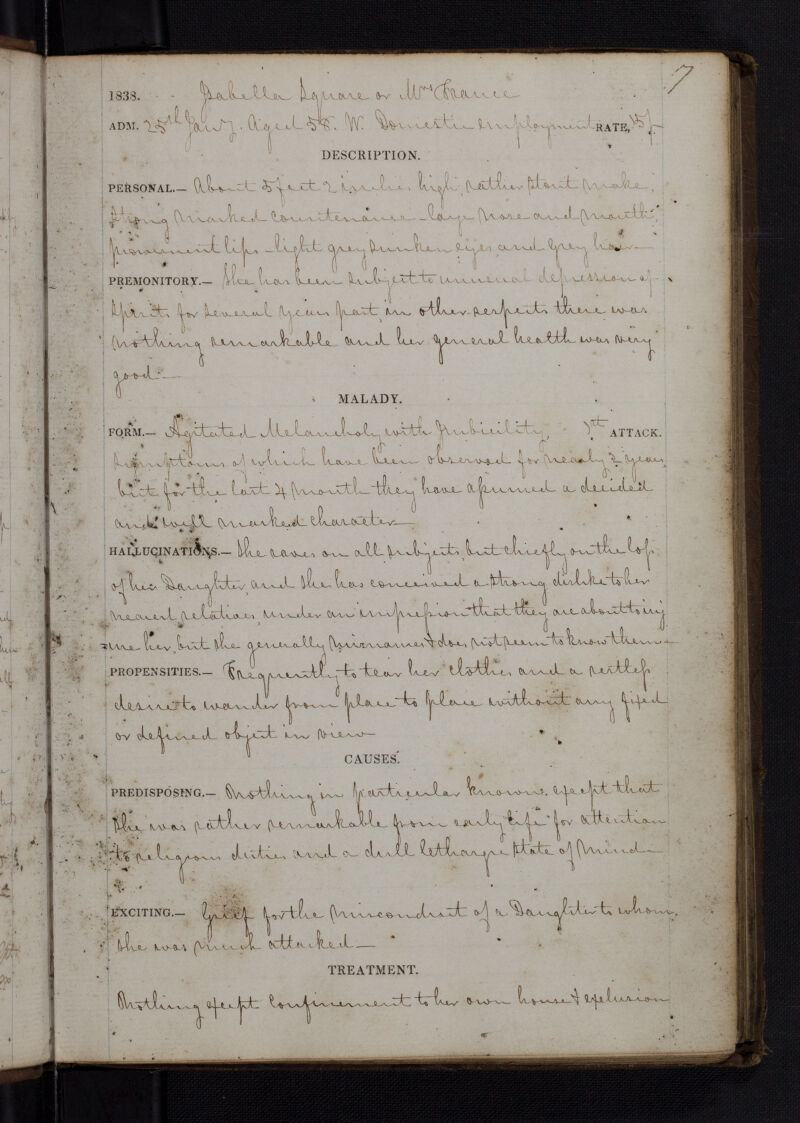 7
1838. Isabella Square or Mrs France
ADM. 25th Jany. Aged 58. W. Domestic employment RATE, 15/-
DESCRIPTION.
PERSONAL.— About 5 feet 2 inches high, rather stout make,
strong marked countenance - large nose and mouth,
prominent lips - light grey sunken eyes and grey hair —
PREMONITORY.— She has been subject to unusual depression of
spirits for several years past, in other respects there was
nothing remarkable and her general health was very
good —
MALADY.
FORM.— Agitated Melancholy with Imbecility, 1st ATTACK.
Symptoms of which have been observed for nearly 2 years
but for the last 4 month they have assumed a decided
and well marked character —
HALLUCINATIONS.— She raves on all subjects, but chiefly on the loss
of her Daughter, and she has conceived a strong dislike to her
nearest relatives, under an impression that they are about to inj
=ure her, but she generally misnames & does not seem to know them —
PROPENSITIES.— Frequently to tear her clothes and a restless
desire to wander from place to place without any fixed
or defined object in view —
CAUSES.
PREDISPOSING.— Nothing in particular known, except that
she was rather remarkable from early life for attention
to religious duties and a dull lethargic state of mind —
EXCITING.— Grief for the misconduct of a Daughter to whom
she was much attached —
TREATMENT.
Nothing except confinement to her own house & exclusion